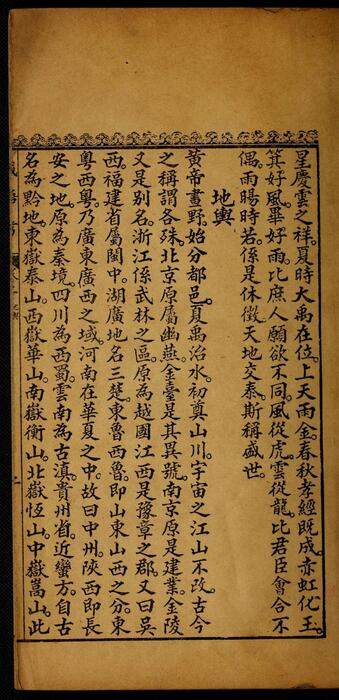 星慶雲之祥。夏時大禹在位。上天雨金。春秋孝經旣成。赤虹化玉。
箕好風。畢好雨。比庶人願欲不同。風從虎。雲從龍。比君臣會合不
偶。雨暘時若。係是休徵。天地交泰。斯稱盛世。
地輿
黃帝畫野。始分都邑。夏禹治水。初奠山川。宇宙之江山不改。古今
之稱謂各殊。北京原屬幽燕。金臺是其異號。南京原是建業。金陵
又是别名。浙江係武林之區。原為越國。江西是豫章之郡。又曰吳
西。福建省屬閩中。湖廣地名三楚。東魯西魯。卽山東山西之分。東
粵西粵。乃廣東廣西之域。河南在華夏之中。故曰中州。陝西卽長
安之地。原為秦境。四川為西蜀。雲南為古滇。貴州省。近蠻方。自古
名為黔地。東嶽泰山。西嶽華山。南嶽衡山。北嶽恆山。中嶽嵩山。此